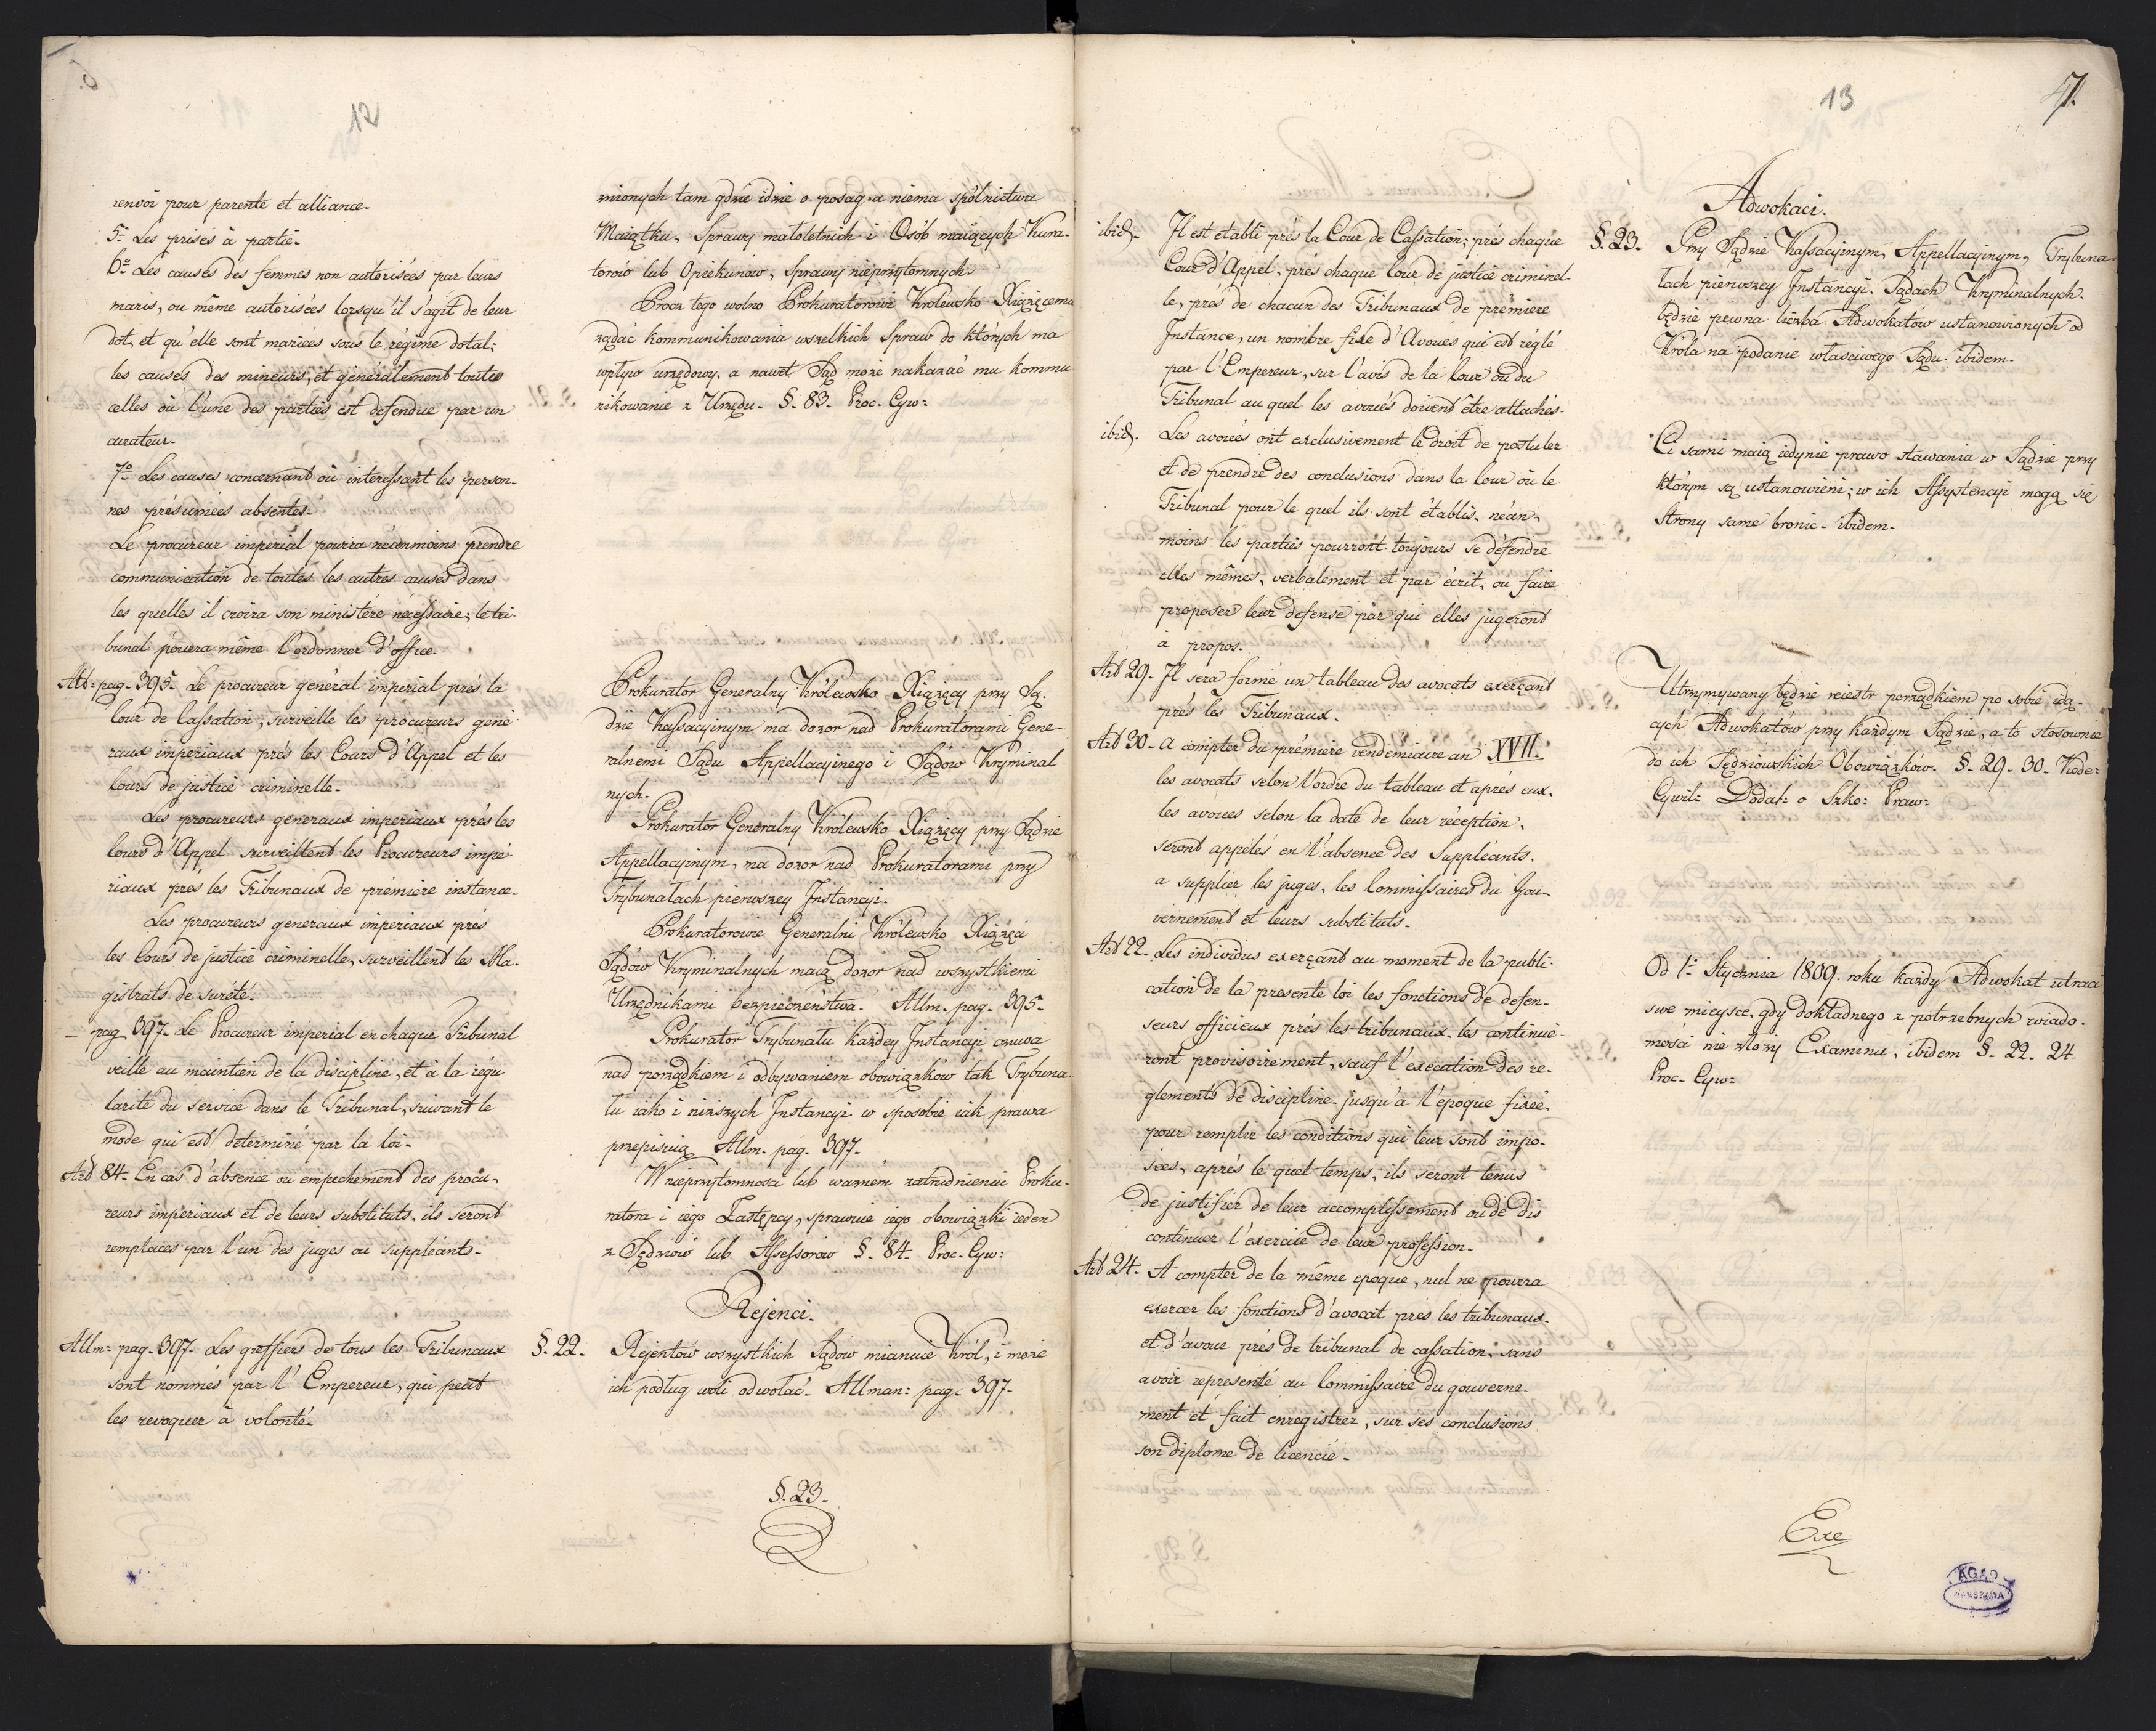 12
renvoi pour parenté et alliance.
5.º Les prises à partie.
6.º Les causes des femmes non autorisées par leurs
maris, ou même autorisées lorsqu'il s'agit de leur
dot, et qu'elle sont mariées sous le régime dotal;
les causes des mineurs, et généralement toutes
celles où l'une des parties est defendue par un
curateur.
7.º Les causes concernant ou interessant les person-
nes présumées absentes.
Le procureur impérial pourra néanmoins prendre
communication de toutes les autres causes dans
les quelles il croira son ministère nécessaire; le tri-
bunal pouera même l'ordonner d'office.
pag. 395. Le procureur général imperial près la
Cour de Cassation, surveille les procureurs géné
raux imperiaux près les Cours d'Appel et les
Cours de justice criminelle.
Les procureurs generaux imperiaux près les
Cours d'Appel surveillent les Procureurs impé-
riaux près les Tribunaux de première instance.
Les procureurs generaux imperiaux près
les Cours de justice criminelle, surveillent les Ma-
gistrats de sureté.
– pag 397. Le Procureur imperial en chaque Tribunal
veille au maintien de la discipline, et à la régu
larité du service dans le Tribunal, suivant le
mode qui est determiné par la loi.
Art 84. En cas d'absence ou empechement des procu-
reurs imperiaux et de leurs substituts. ils seront
remplacés par l'un des juges ou suppleants.
Allm: pag. 397. Les greffiers de tous les Tribunaux
sont nommés par l'Empereur, qui peut
les revoquer à volonté.
mionych tam gdzie idzie o posag a niema spólnictwa
Maiątku, Sprawy małoletnich i Osób maiących Kura-
torow lub Opiekunow, Sprawy nieprzytomnych.
Procz tego wolno Prokuratorowi Krolewsko Xiążęcemu
żądać kommunikowania wszelkich Spraw do których ma
wpływ urzędowy, a nawet Sąd może nakazać mu kommu
nikowanie z Urzędu. §. 83. Proc. Cyw:
Prokurator Generalny Królewsko Xiążęcy przy Są-
dzie Kassacyinym ma dozor nad Prokuratorami Gene-
ralnemi Sądu Appellacyinego i Sądow Kryminal
nych.
Prokurator Generalny Królewsko Xiążęcy przy Sądzie
Appellacyinym, ma dozor nad Prokuratorami przy
Trybunalach pierwszey Instancyi.
Prokuratorowie Generalni Królewsko Xiążęci
Sądów Kryminalnych maią dozor nad wszystkiemi
Urzędnikami bezpieczeństwa. Allm. pag. 395.
Prokurator Trybunału Każdey Instancyi czuwa
nad porządkiem i odbywaniem obowiązkow tak Trybuna-
łu iako i niższych Instancyi w sposobie iak prawa
przepisuią Allm. pag. 397.
W nieprzytomnosci lub ważnem zatrudnieniu Proku-
ratora i iego Zastępcy, sprawuie iego obowiązki ieden
z Sędziow lub Assessorow §. 84. Proc. Cyw:
Rejenci.
§. 22. Rejentów wszystkich Sądow mianuie Król, i może
ich podług woli odwołać. Allman: pag. 397.
§. 23.
13
7.
ibid. Il est etabli près la Cour de Cassation; près chaque
Cour d'Appel, près chaque Cour de justice criminel-
le, près de chacun des Tribunaux de première
Instance, un nombre fixe d'Avoués qui est réglé
par l'Empereur, sur l'avis de la Cour ou du
Tribunal au quel les avoués doivent être attachés.
ibid. Les avoués ont exclusivement le droit de postuler
et de prendre des conclusions dans la Cour où le
Tribunal pour le quel ils sont établis. néan-
moins les parties pourront toujours se défendre
elles mêmes, verbalement et par écrit, ou faire
proposer leur defense par qui elles jugeront
à propos.
Art 29. Il sera formé un tableau des avocats exerçant
près les Tribunaux.
Art 30. a compter du première vendémiaire an XVII.
les avocats selon l'ordre du tableau et après eux.
les avoues selon la date de leur réception,
seront appelés en l'absence des Suppléants.
a supplier les juges, les Commissaires du Gou-
vernement et leurs substituts.
Art 22. Les individus exerçant au moment de la publi-
cation de la presente loi les fonctions de defen-
seurs officieux près les tribunaux. les continue-
ront provisoirement, sauf l'execation des re-
glements de discipline. jusqu'à l'époque fixée.
pour remplir les conditions qui leur sont impo-
sées, après le quel temps, ils seront tenus
de justifier de leur accomplissement ou de dis
continuer l'exercice de leur profession.
Art 24. A compter de la même epoque, nul ne pourra
exercer les fonctions d'avocat près les tribunaux.
et d'avoue près de tribunal de cassation, sans
avoir representé au Commissaire du gouverne-
ment et fait enregistrer, sur ses conclusions
son diplome de licencié.
Adwokaci.
§. 23. Przy Sądzie Kassacyinym, Appellacyinym, Trybuna-
łach pierwszey Instancyi. Sądach Kryminalnych.
będzie pewna liczba Adwokatow ustanowionych od
Króla na podanie właściwego Sądu. ibidem.
Ci sami maią iedynie prawo stawania w Sądzie przy
którym są ustanowieni; w ich Assystencyi mogą się
Strony same bronic. ibidem.
Utrzymywany będzie reiestr porządkiem po sobie idą-
cych Adwokatów przy każdym Sądzie, a to stosownie
do ich Sędziowskich Obowiązkow. §. 29. 30. Kode:
Cywil: Dodat: o Szko: Praw:
Od 1.º Stycznia 1809. roku każdy Adwokat utraci
swe mieysce, gdy dokładnego z potrzebnych wiado-
mości nie złoży Examinu, ibidem §. 22. 24
Proc. Cyw:
Exe
AGAD
WARSZAWA